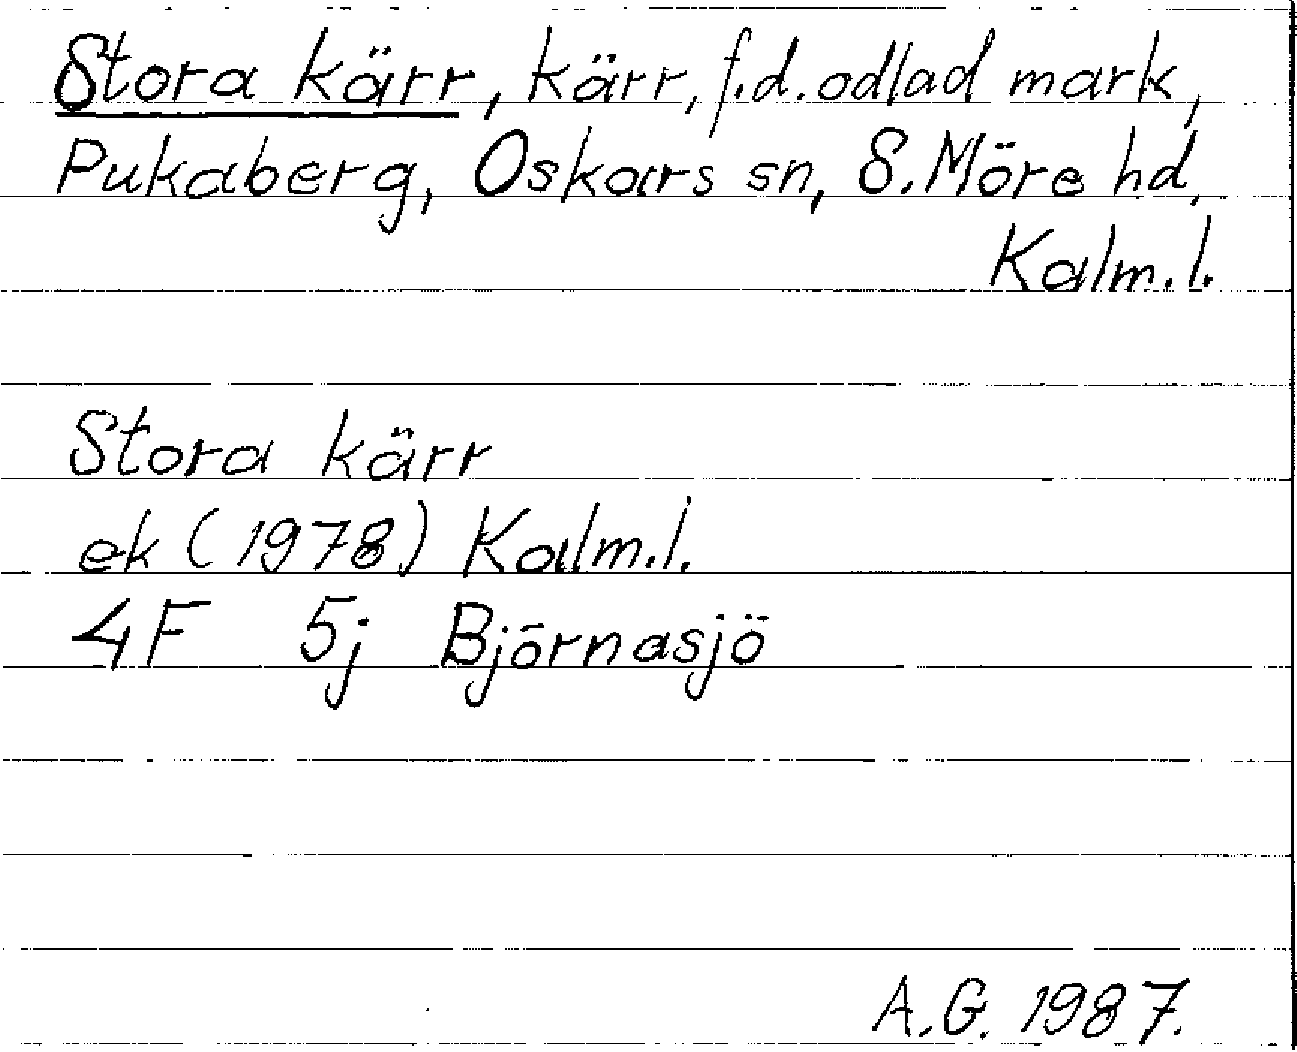 Stora kärr, kärr, f.d. odlad mark,
Pukaberg, Oskars sn, S. Möre hd,
Kalm.l.
Stora kärr
ek (1978) Kalm.l.
4F 5j Björnasjö
A.G. 1987.